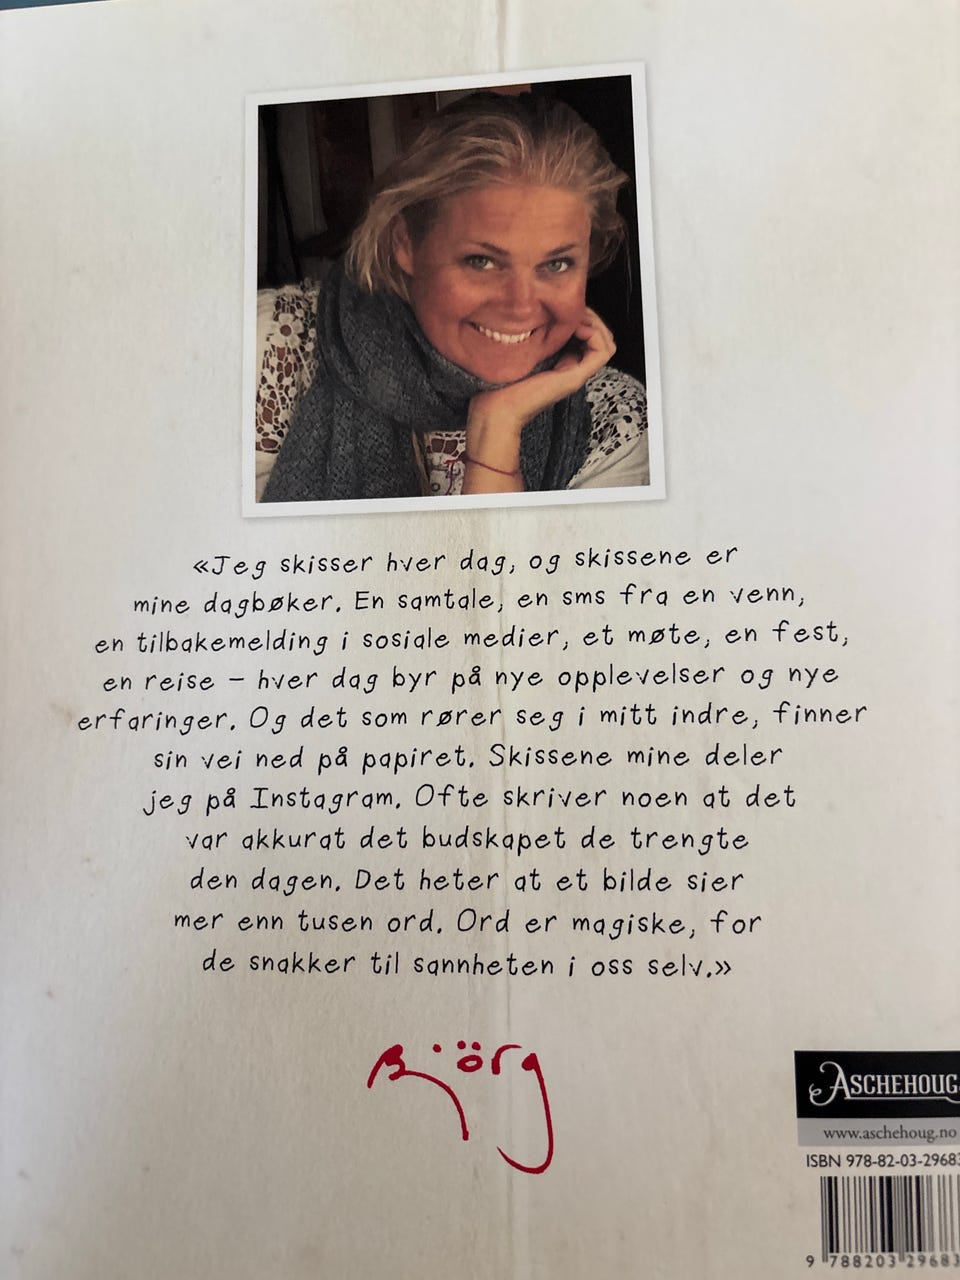 «Jeg skisser hver dag, og skissene er
mine dagbøker. En samtale, en sms fra en venn,
en tilbakemelding i sosiale medier, et møte, en fest,
en reise – hver dag byr på nye opplevelser og nye
erfaringer. Og det som rører seg i mitt indre, finner
sin vei ned på papiret. Skissene mine deler
jeg på Instagram. Ofte skriver noen at det
var akkurat det budskapet de trengte
den dagen. Det heter at et bilde sier
mer enn tusen ord. Ord er magiske, for
de snakker til sannheten i oss selv.»
Björg
ASCHEHOUG
www.aschehoug.no
ISBN 978-82-03-29683
9 788203 29683